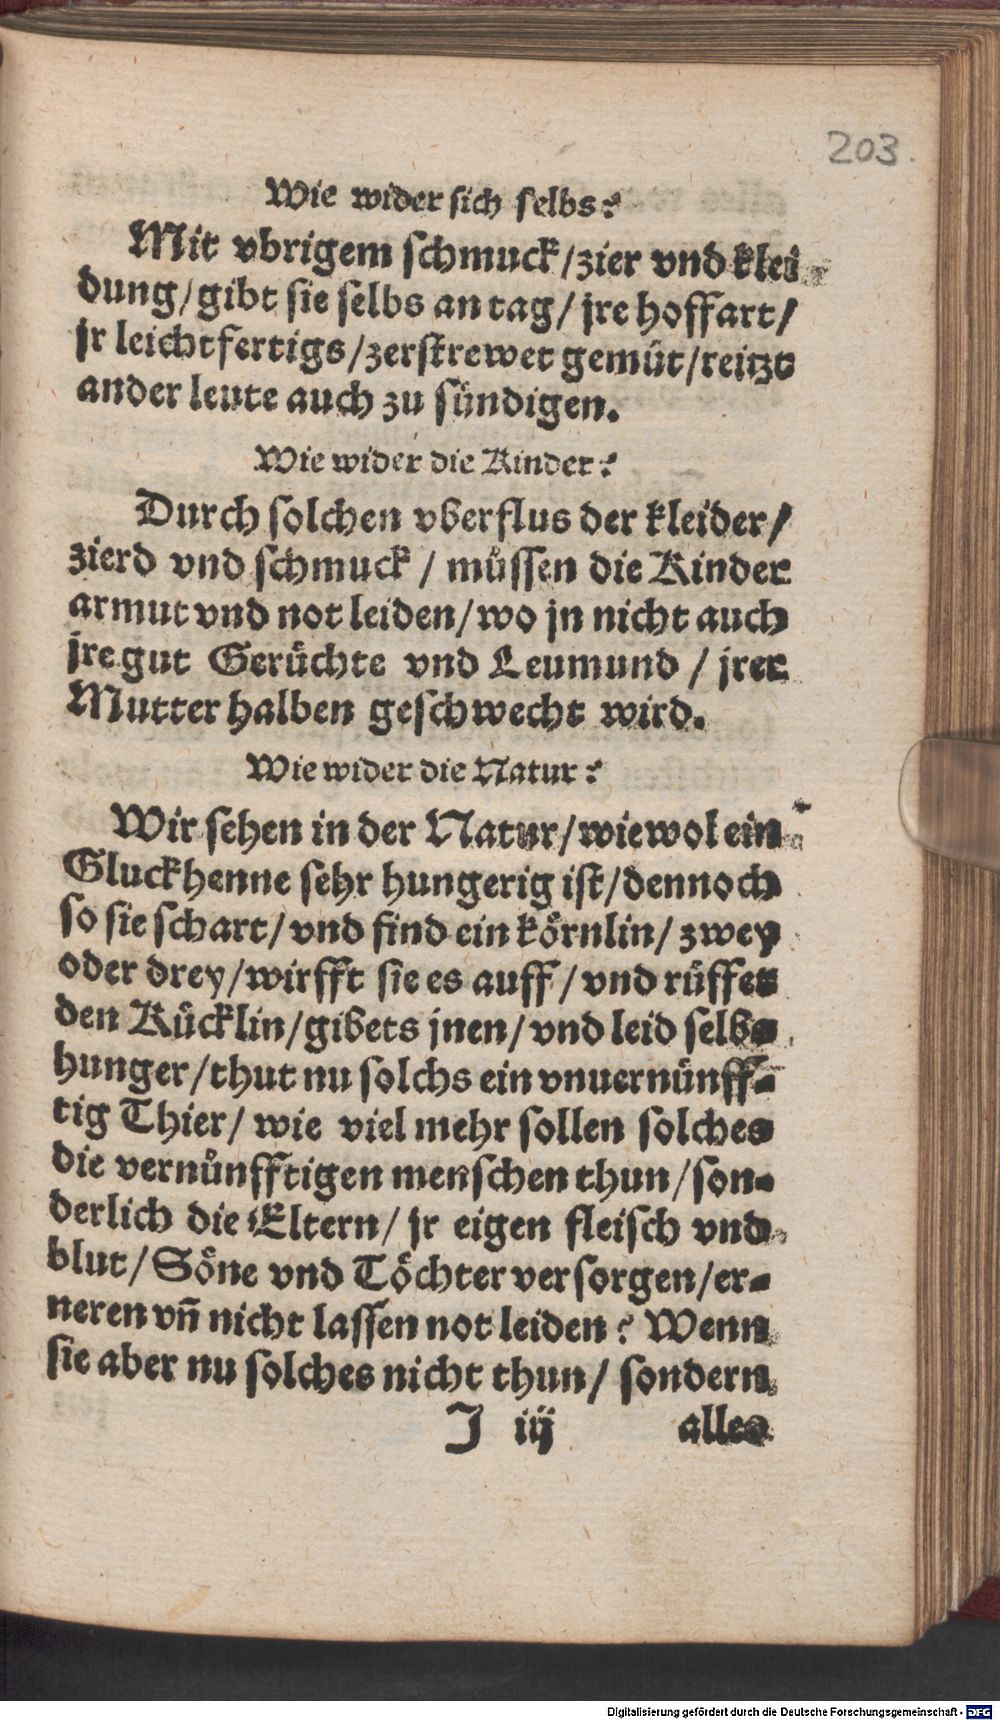 203.
Wie wider sich selbs?
Mit vbrigem schmuck/zier vnd klei
dung/gibt sie selbs an tag/ jre hoffart/
jr leichtfertigs/zerstrewet gemüt/reitzt
ander leute auch zu sündigen.
Wie wider die Kinder?
Durch solchen vberflus der kleider/
zierd vnd schmuck / müssen die Kinder
armut vnd not leiden/wo jn nicht auch
jre gut Gerüchte vnd Leumund / jrer
Mutter halben geschwecht wird.
Wie wider die Natur?
Wir sehen in der Natur/wiewol ein
Gluckhenne sehr hungerig ist/dennoch
so sie schart/vnd find ein körnlin/ zwey
oder drey/wirfft sie es auff/vnd rüffet
den Kücklin/gibets jnen/vnd leid selbs
hunger/thut nu solchs ein vnuernünff-
tig Thier/ wie viel mehr sollen solches
die vernünfftigen menschen thun/son-
derlich die Eltern/ jr eigen fleisch vnd
blut/Söne vnd Töchter versorgen/er-
neren vñ nicht lassen not leiden? Wenn
sie aber nu solches nicht thun/ sondern
J iij alles
Digitalisierung gefördert durch die Deutsche Forschungsgemeinschaft - DFG